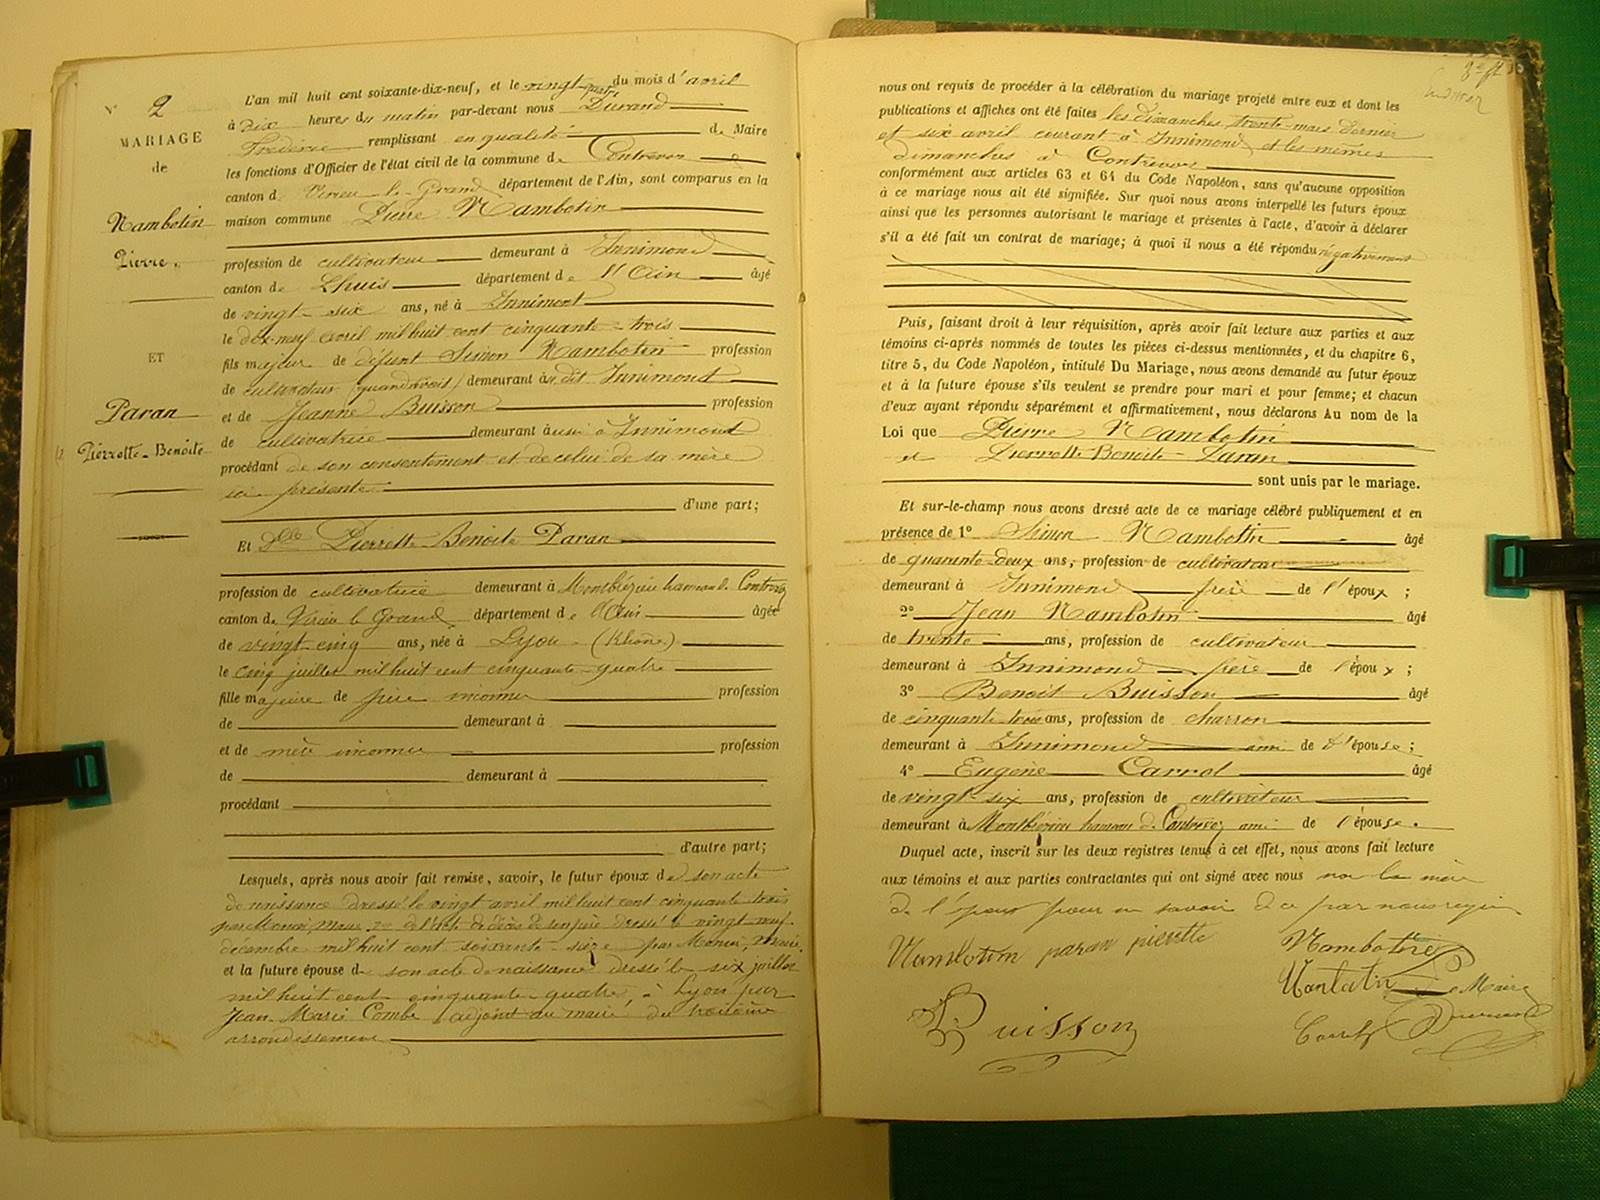 N° 2
MARIAGE
de
Nambotin
Pierre.
ET
Paran
Pierrette-Benoite
L'an mil huit cent soixante-dix-neuf, et le vingt-quatre du mois d'avril
à Dix heures du matin par-devant nous Durand
Frédéric remplissant en qualité de Maire
les fonctions d'Officier de l'état civil de la commune de Contrevoz
canton de Virieu-le-Grand département de l'Ain, sont comparus en la
maison commune Pierre Nambotin
profession de cultivateur demeurant à Innimond
canton de Lhuis département de l'Ain âgé
de vingt-six ans, né à Innimont
le dix-neuf avril mil huit cent cinquante-trois
fils majeur de défunt Simon Nambotin profession
de cultivateur (quand vivait) demeurant à dit Innimont
et de Jeanne Buisson profession
de cultivatrice demeurant aussi à Innimond
procédant de son consentement et de celui de sa mère
ici présente
d'une part;
Et Dlle Pierrette Benoite Paran
profession de cultivatrice demeurant à Montblézieu hameau de Contrevoz
canton de Virieu le Grand département de l'Ain âgée
de vingt-cinq ans, née à Lyon (Rhône)
le cinq juillet mil huit cent cinquante-quatre
fille majeure de père inconnu profession
de demeurant à
et de mère inconnue profession
de demeurant à
procédant
d'autre part;
Lesquels, après nous avoir fait remise, savoir, le futur époux de son acte
de naissance dressé le vingt avril mil huit cent cinquante trois
par Monin, Maire, de l'acte de décès de son père dressé le vingt-neuf
décembre mil huit cent soixante-seize par Monin, maire
et la future épouse de son acte de naissance dressé le six juillet
mil huit cent cinquante-quatre, à Lyon par
Jean-Marie Combe adjoint au maire du troisième
arrondissement
nous ont requis de procéder à la célébration du mariage projeté entre eux et dont les
publications et affiches ont été faites les dimanches trente mars dernier
et six avril courant à Innimond et les mêmes
dimanches à Contrevoz
conformément aux articles 63 et 64 du Code Napoléon, sans qu'aucune opposition
à ce mariage nous ait été signifiée. Sur quoi nous avons interpellé les futurs époux
ainsi que les personnes autorisant le mariage et présentes à l'acte, d'avoir à déclarer
s'il a été fait un contrat de mariage; à quoi il nous a été répondu négativement
Puis, faisant droit à leur réquisition, après avoir fait lecture aux parties et aux
témoins ci-après nommés de toutes les pièces ci-dessus mentionnées, et du chapitre 6,
titre 5, du Code Napoléon, intitulé Du Mariage, nous avons demandé au futur époux
et à la future épouse s'ils veulent se prendre pour mari et pour femme; et chacun
d'eux ayant répondu séparément et affirmativement, nous déclarons Au nom de la
Loi que Pierre Nambotin
et Pierrette Benoite Paran
sont unis par le mariage.
Et sur-le-champ nous avons dressé acte de ce mariage célébré publiquement et en
présence de 1° Simon Nambotin âgé
de quarante-deux ans, profession de cultivateur
demeurant à Innimond frère de l'époux ;
2° Jean Nambotin âgé
de trente ans, profession de cultivateur
demeurant à Innimond frère de l'époux ;
3° Benoit Buisson âgé
de cinquante-trois ans, profession de charron
demeurant à Innimond ami de l'épouse ;
4° Eugène Carrel âgé
de vingt-six ans, profession de cultivateur
demeurant à Montblézieu hameau de Contrevoz ami de l'épouse.
Duquel acte, inscrit sur les deux registres tenus à cet effet, nous avons fait lecture
aux témoins et aux parties contractantes qui ont signé avec nous non la mère
de l'époux pour ne savoir de ce par nous requis
Nambotin paran pierette Nambotin
Nambotin Le Maire
Buisson
Durand